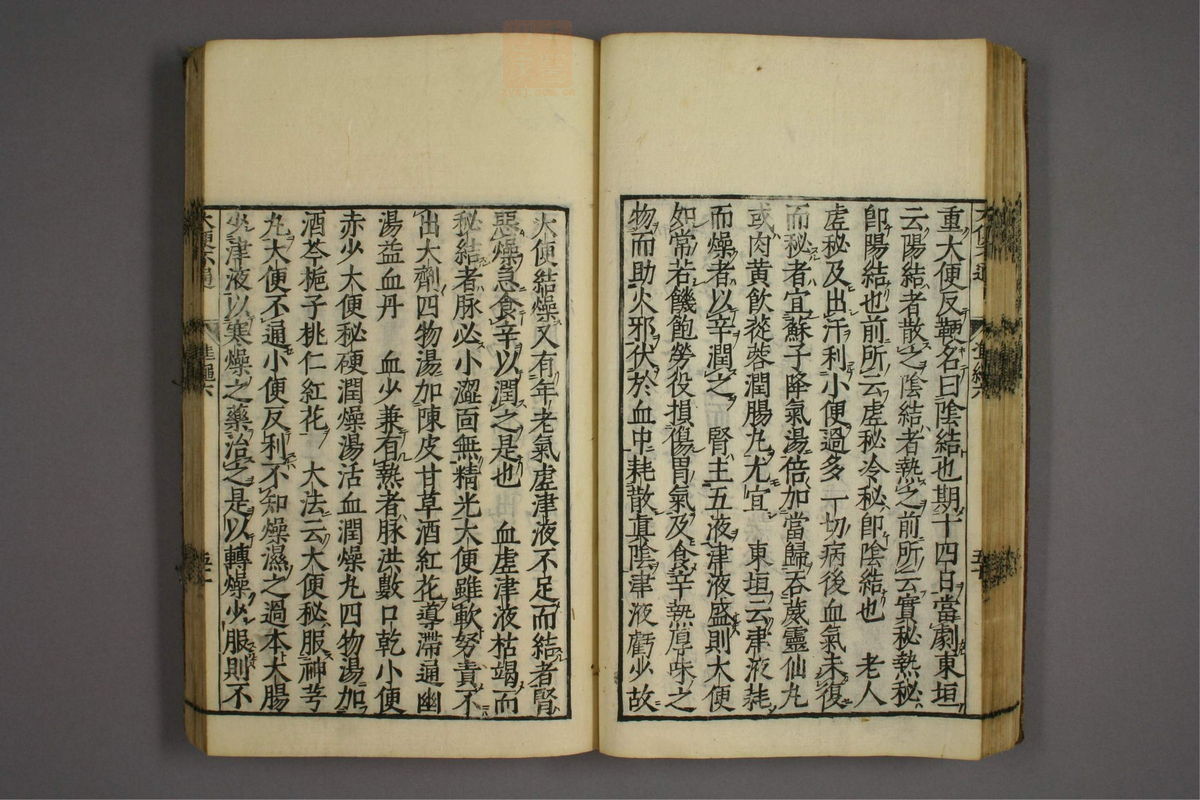 重大便反鞕名曰陰結也期十四日當劇東垣
云陽結者散之陰結者熱之前所云實秘熱秘
卽陽結也前所云虚秘冷秘卽陰結也　老人
虚秘及出汗利小便過多一切病後血氣未復
而秘者宜蘇子降氣湯倍加當歸吞威靈仙丸
或肉黄飲蓯蓉潤腸丸尤宜　東垣云津液耗
而燥者以辛潤之　腎主五液津液盛則大便
如常若饑飽勞役損傷胃氣及食辛熱厚味之
物而助火邪伏於血中耗散真陰津液虧少故
大便結燥又有年老氣虚津液不足而結者腎
惡燥急食辛以潤之是也　血虚津液枯竭而
秘結者脉必小澀面無精光大便雖軟努責不
出大劑四物湯加陳皮甘草酒紅花導滯通幽
湯益血丹　血少兼有熱者脉洪數口乾小便
赤少大便秘硬潤燥湯活血潤燥丸四物湯加
酒芩梔子桃仁紅花　大法云大便秘服神芎
丸大便不通小便反利不知燥濕之過本大腸
少津液以寒燥之藥治之是以轉燥少服則不
大便不通